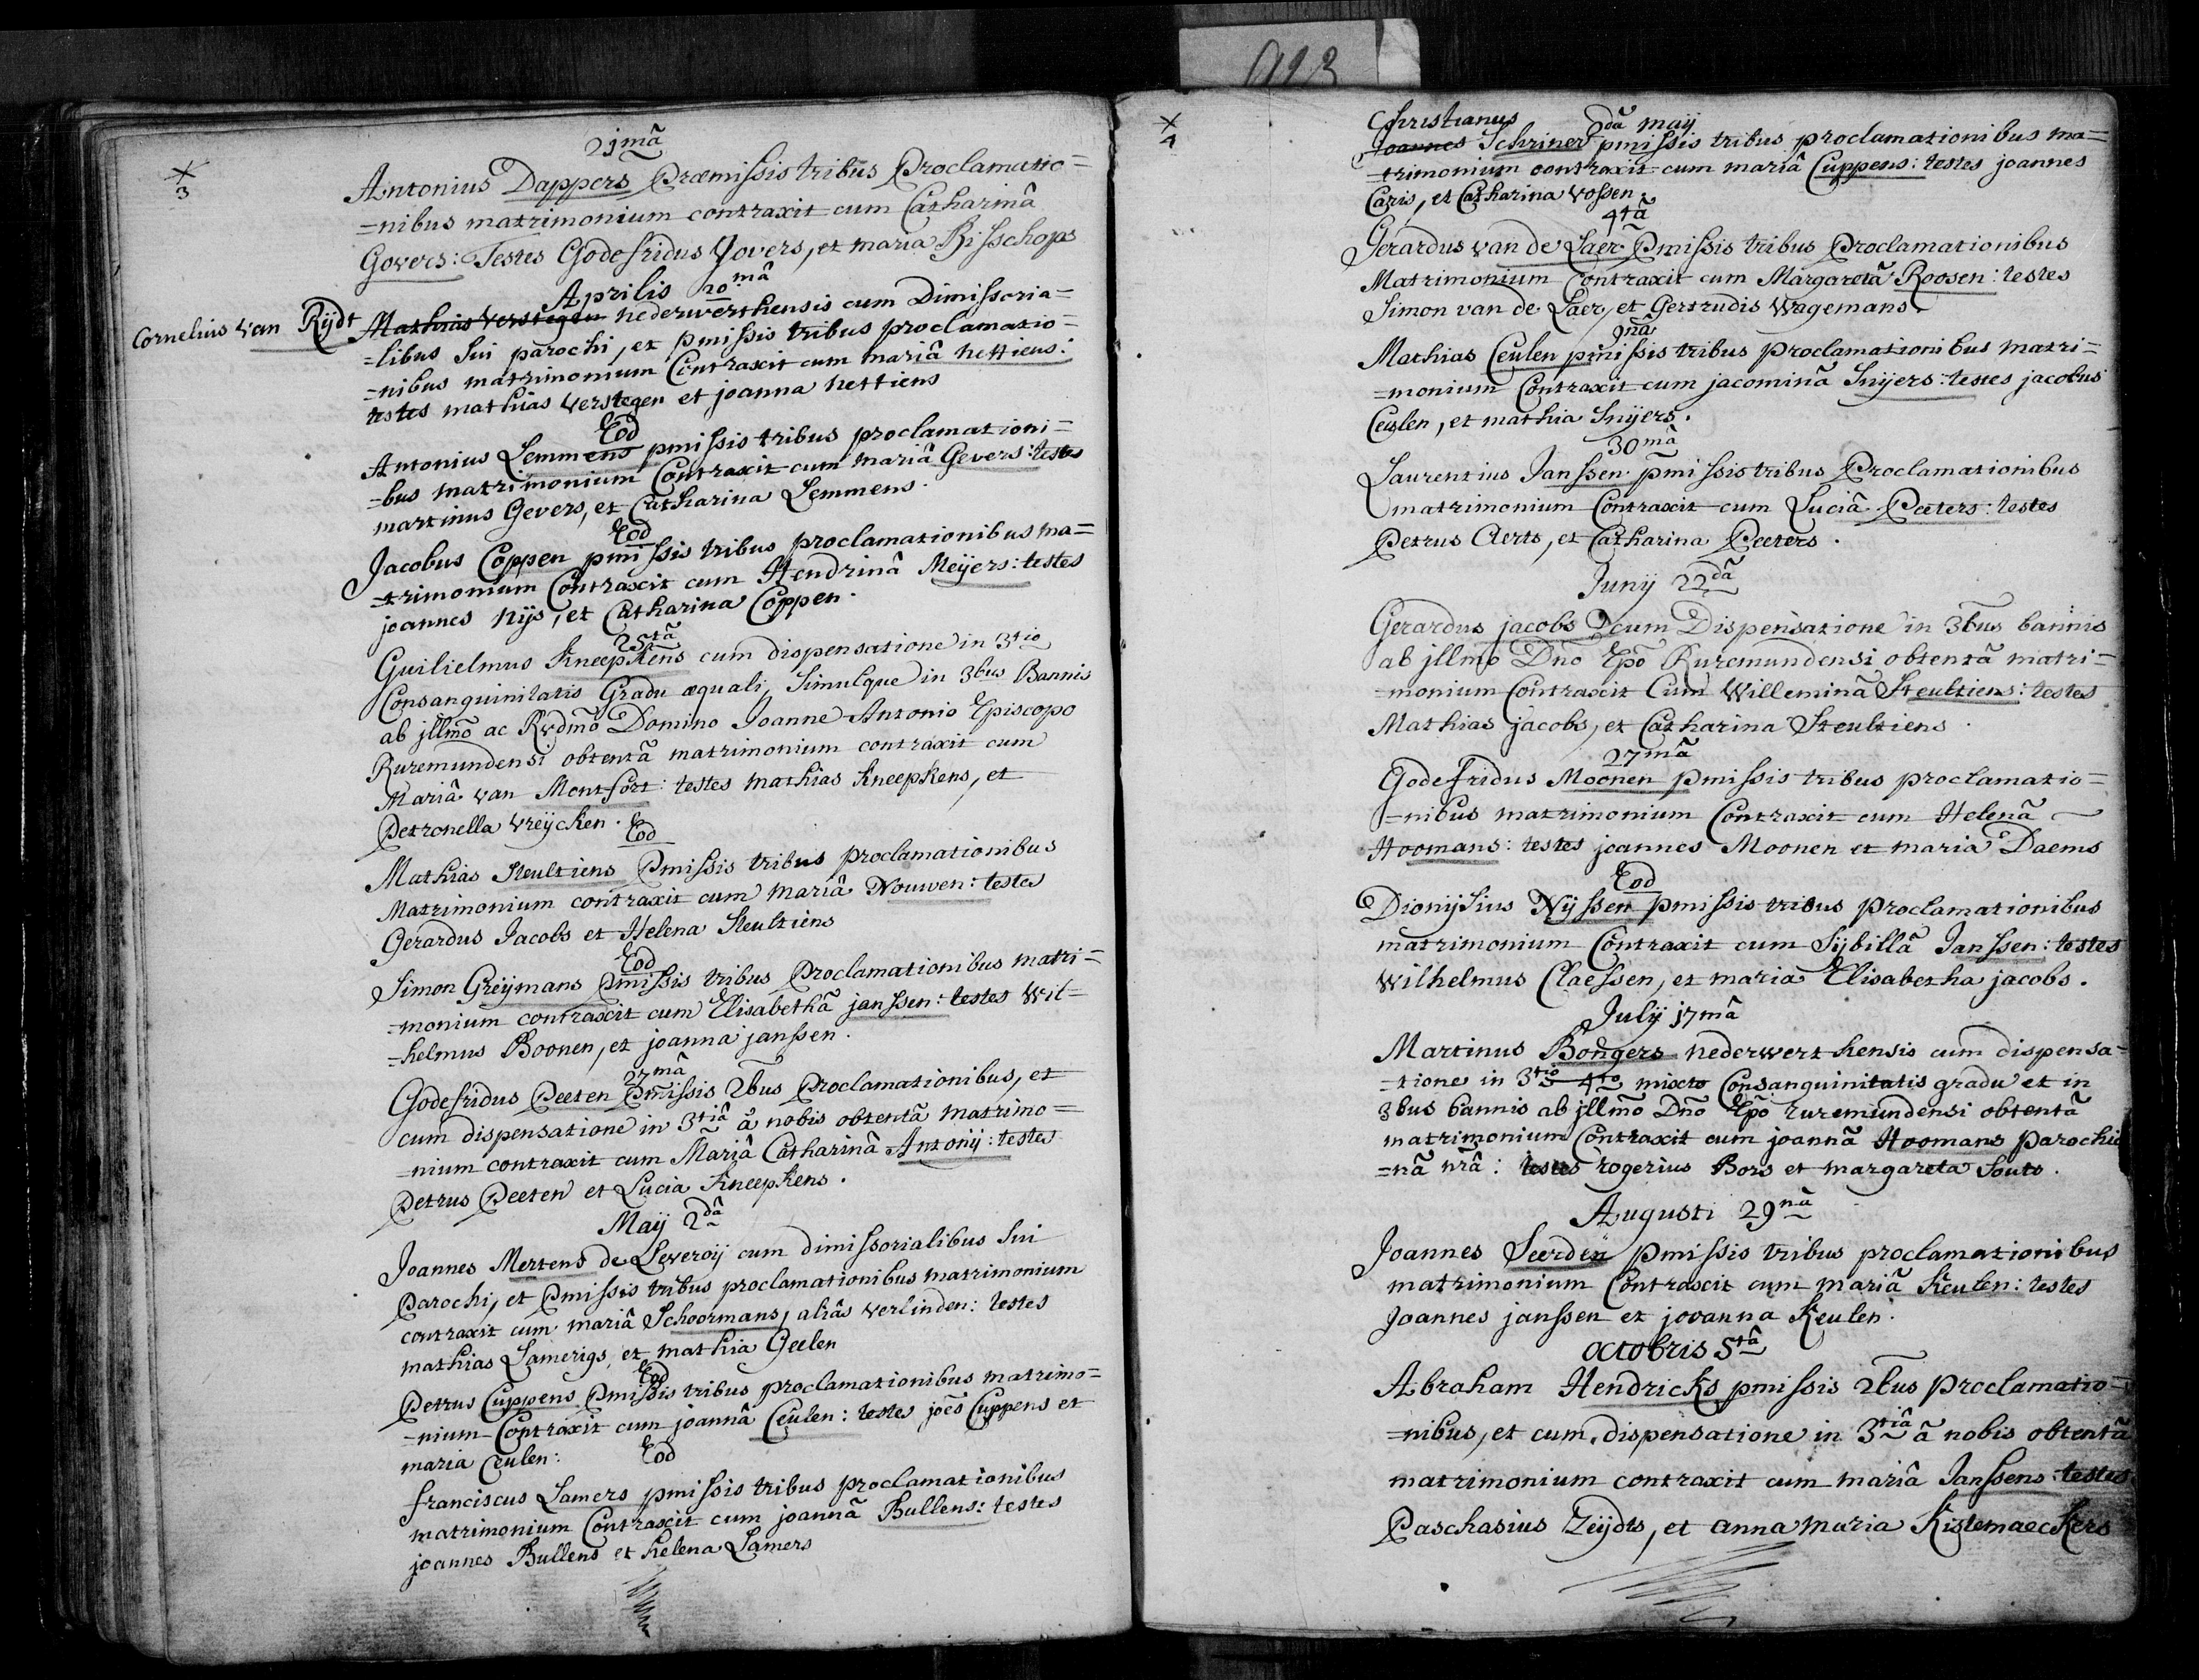 923
×
3
21mâ
Antonius Dappers Præmissis tribus Proclamatio=
=nibus matrimonium contraxit cum Catharinâ
Govers: Testes Godefridus Govers, et maria Bisschops
Aprilis 20mâ
Cornelius van Rijdt Mathias Verstegen nederwerthensis cum Dimissoria=
=libus sui parochi, et pmissis tribus proclamatio=
=nibus matrimonium Contraxit cum mariâ nettiens:
testes mathias Verstegen et joanna nettiens
Eod
Antonius Lemmens pmissis tribus proclamationi=
=bus matrimonium Contraxit cum mariâ Gevers: testes
martinus Gevers, et Catharina Lemmens.
Eod
Jacobus Coppen pmissis tribus proclamationibus ma=
=trimonium Contraxit cum Hendrinâ Meijers: testes
joannes nijs, et Catharina Coppen.
25tâ
Guilielmus Kneepkens cum dispensatione in 3tio
Consanguinitatis Gradu æquali, Simulque in 3bus Bannis
ab jllmo ac Rvdmo Domino Joanne Antonio Episcopo
Ruremundensi obtentâ matrimonium contraxit cum
Mariâ van Montfort: testes mathias Kneepkens, et
Petronella Vreijcken.
Eod
Mathias Steultiens Pmissis tribus proclamationibus
Matrimonium contraxit cum mariâ Nouwen: testes
Gerardus Jacobs et Helena Steultiens
Eod
Simon Greijmans Pmissis tribus Proclamationibus matri=
=monium contraxit cum Elisabethâ janssen: testes Wil=
=helmus Boonen, et joanna janssen.
27mâ
Godefridus Peeten Pmissis 2bus Proclamationibus, et
cum dispensatione in 3tiâ â nobis obtentâ matrimo=
=nium contraxit cum Mariâ Catharinâ Antonij: testes
Petrus Peeten et Lucia Kneepkens.
Maij 2dâ
Joannes Mertens de Leveroij cum dimissorialibus sui
Parochi, et Pmissis tribus proclamationibus matrimonium
contraxit cum mariâ Schoormans, aliâs verlinden: testes
mathias Lamerigs, et mathia Geelen
Eod
Petrus Cuppens Pmissis tribus proclamationibus matrimo=
=nium Contraxit cum joannâ Ceulen: testes joës Cuppens et
maria Ceulen:
Eod
franciscus Lamers pmissis tribus proclamationibus
matrimonium Contraxit cum joannâ Bullens: testes
joannes Bullens et helena Lamers
×
4
Christianus 2dâ maij
Joannes Schriner pmissis tribus proclamationibus ma=
=trimonium contraxit cum mariâ Cuppens: testes joannes
Caris, et Catharina Vossen.
4tâ
Gerardus van de Laer Pmissis tribus Proclamationibus
Matrimonium Contraxit cum Margaretâ Roosen: testes
Simon van de Laer, et Gertrudis Wagemans
9nâ
Mathias Ceulen pmissis tribus proclamationibus matri=
=monium Contraxit cum jacominâ Snijers: testes jacobus
Ceulen, et mathia Snijers.
30mâ
Laurentius Janssen pmissis tribus Proclamationibus
matrimonium Contraxit cum Luciâ Peeters: testes
Petrus Aerts, et Catharina Peeters.
Junij 22dâ
Gerardus jacobs cum Dispensatione in 3bus bannis
ab jllmo Dno Epo Ruremundensi obtentâ matri=
=monium Contraxit Cum Willeminâ Steultiens: testes
Mathias jacobs, et Catharina Steultiens.
27mâ
Godefridus Moonen pmissis tribus proclamatio=
=nibus matrimonium Contraxit cum Helenâ
Hoomans: testes joannes Moonen et maria Daems
Eod
Dionijsius Nijssen pmissis tribus proclamationibus
matrimonium Contraxit cum Sijbillâ Janssen: testes
Wilhelmus Claessen, et maria Elisabetha jacobs.
Julij 17mâ
Martinus Bongers nederwerthensis cum dispensa=
=tione in 3tio 4to mixto Consanguinitatis gradu et in
3bus bannis ab jllmo Dno Epo ruremundensi obtentâ
matrimonium Contraxit cum joannâ Hoomans parochia
=nâ nrâ: testes rogerius Bors et margareta Souts.
Augusti 29nâ
Joannes Seerden pmissis tribus proclamationibus
matrimonium Contraxit cum mariâ Keulen: testes
Joannes janssen et joanna Keulen.
Octobris 5tâ
Abraham Hendricks pmissis 2bus proclamatio=
=nibus, et cum dispensatione in 3tiâ â nobis obtentâ
matrimonium contraxit cum mariâ Janssens: testes
Paschasius Zeijdts, et anna maria Kistemaeckers